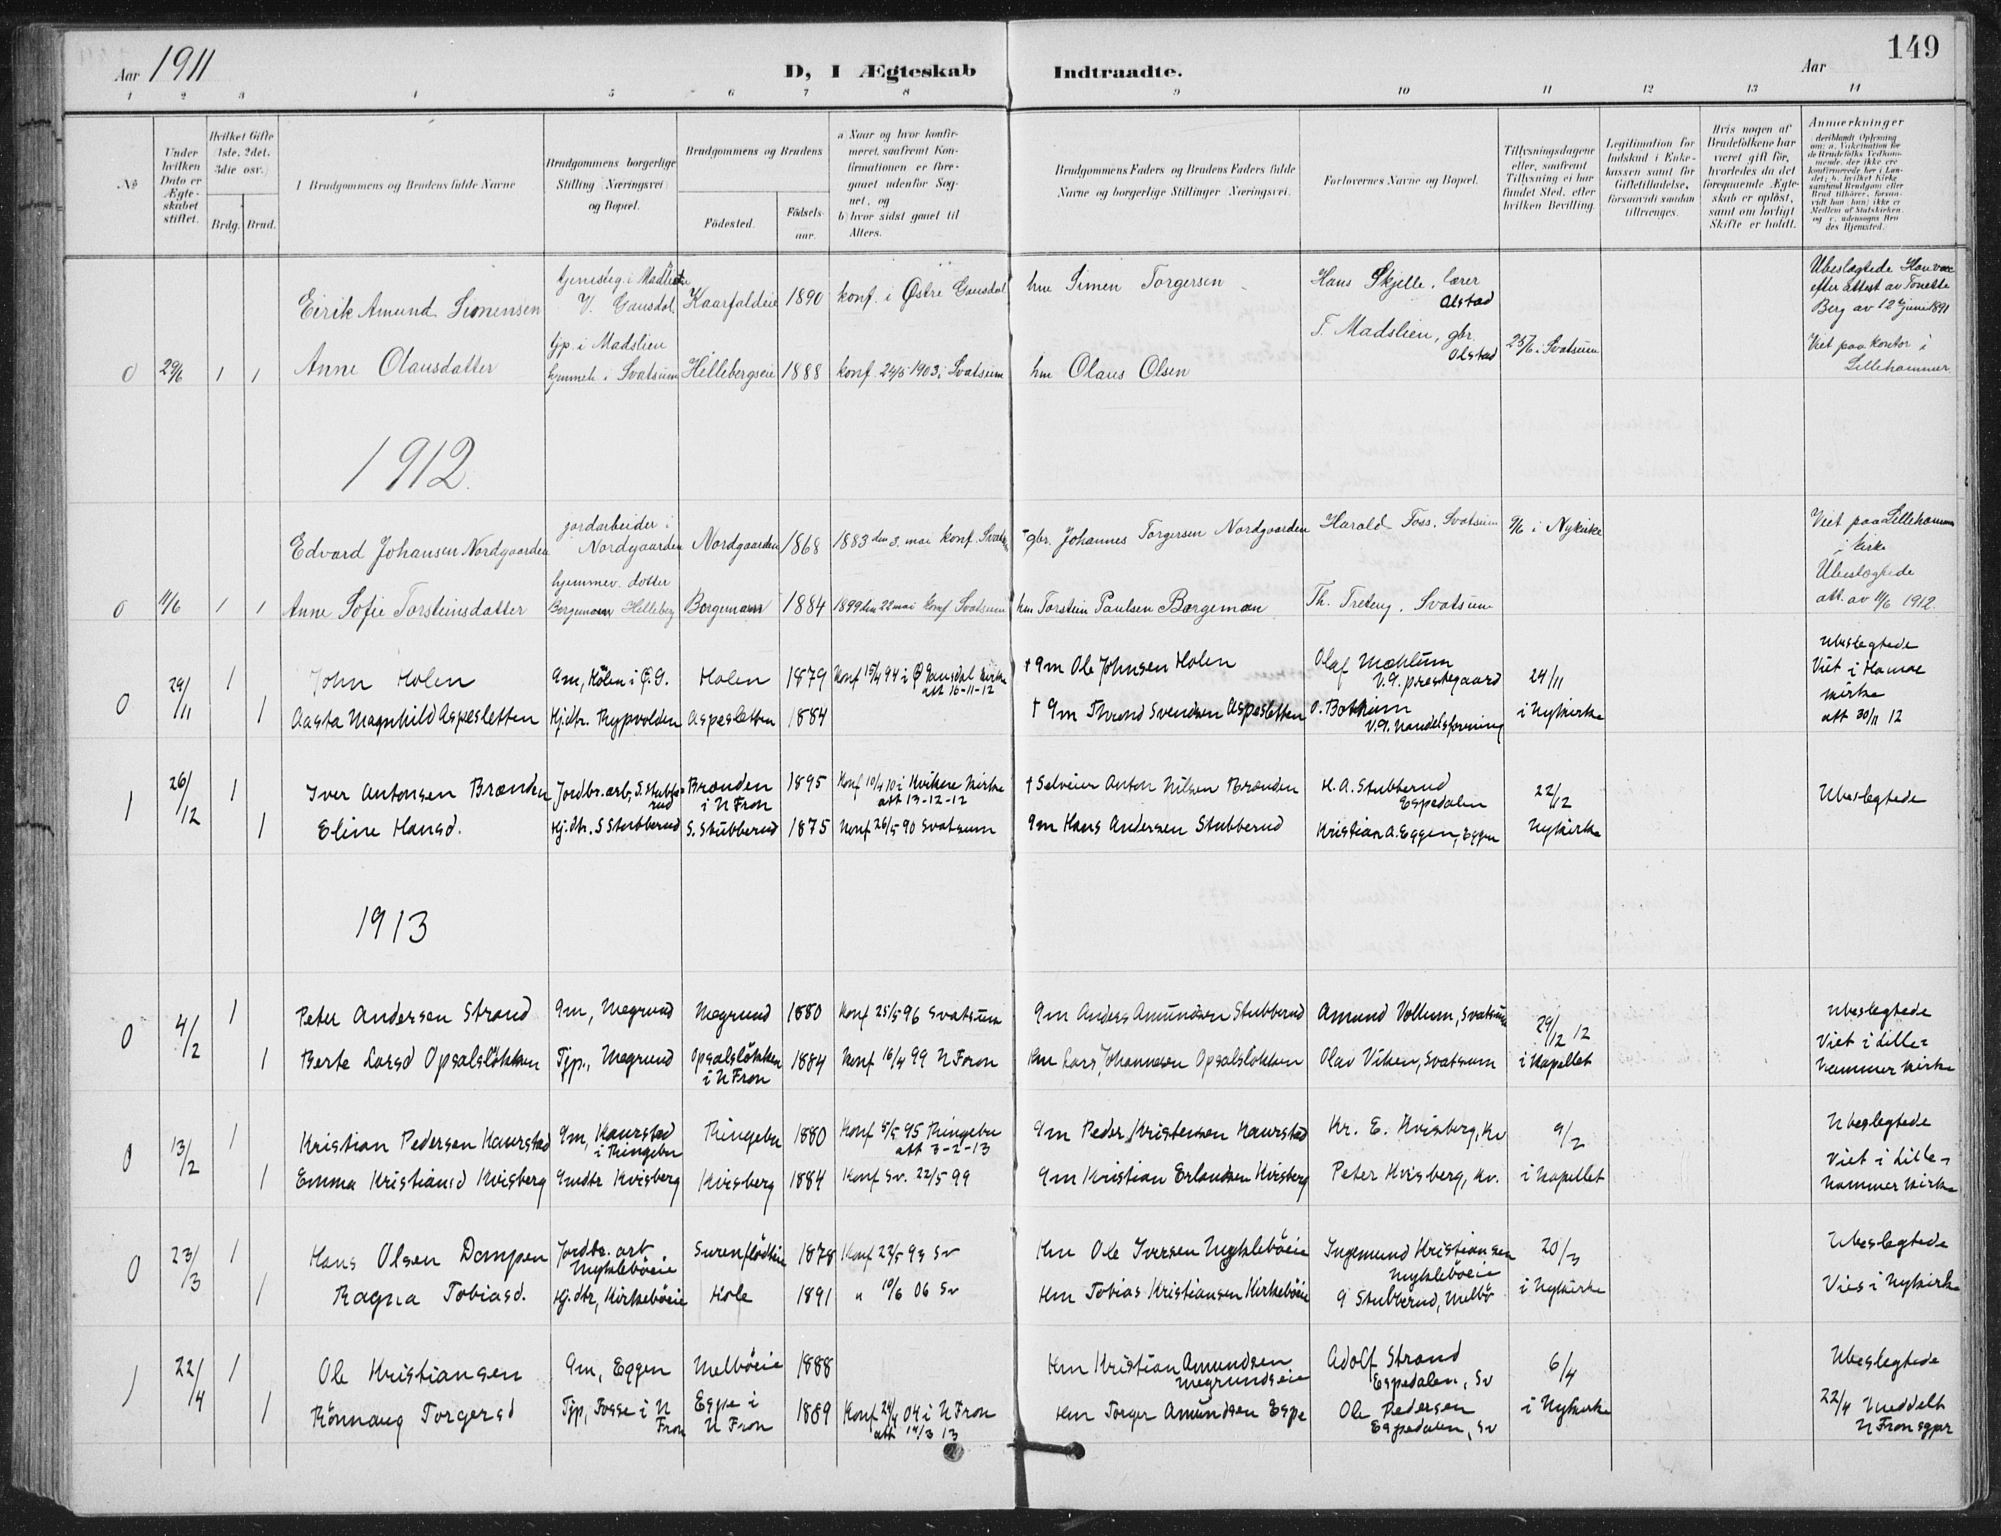 Aar 1911
D, I Ægteskab Indtraadte.
Aar
149
1 2 3 4 5 6 7 8 9 10 11 12 13 14
No
Under hvilken Dato er Ægteskabet stiftet.
Hvilket Gifte (1ste, 2det, 3die osv.)
Brdg. Brud.
Brudgommens og Brudens fulde Navne
Brudgommens borgerlige Stilling (Næringsvei) og Bopæl.
Brudgommens og Brudens
Fødested.
Fødselsaar.
a Naar og hvor konfirmeret, saafremt Konfirmationen er foregaaet udenfor Sognet, og
b hvor sidst gaaet til Alters.
Brudgommens Faders og Brudens Faders fulde Navne og borgerlige Stillinger (Næringsvei).
Forlovernes Navne og Bopæl.
Tillysningsdagene eller, saafremt Tillysning ei har fundet Sted, efter hvilken Bevilling.
Legitimation for Indskud i Enkekassen samt for Giftetilladelse, forsaavidt saadan tiltrænges.
Hvis nogen af Brudefolkene har været gift før, hvorledes da det foregaaende Ægteskab er opløst, samt om lovligt Skifte er holdt.
Anmerkninger
Eirik Amund Simensen V. Gausdal Kaarfaldeie 1890 konf. i Østre Gausdal hm Simen Torgersen Hans Skjelle, lærer Olstad
Ubeslægtede
efter Attest av Tonette Berg av 12te juni 1891
0 29/6 1 1 Anne Olausdatter tjp. i Madslien hjemmeh. i Svatsum Hillebergseie 1888 konf. 24/5 1903 i Svatsum hm Olaus Olsen T. Madslien, gbr. Olstad 25/6 i Svatsum
Viet paa kontor i Lillehammer
1912.
Edvard Johansen Nordgaarden jordarbeider i Nordgaarden Nordgaarden 1868 1883 den 3. mai konf. gbr. Johannes Torgersen Nordgaarden Harald Foss, Svatsum 9/6 i Nykirke
Viet paa Lillehammer kirke
0 11/6 1 1 Anne Sofie Torsteinsdatter hjemmev. dotter Borgeman Helleberg Borgeman 1884 1899 den 22 mai konf Svatsum hm Torstein Paulsen Borgeman Th. Treteng, Svatsum
Ubeslægtede
att. av 11/6 1912.
0 29/11 1 John Holen Gm, Holen i Ø.G. Holen 1879 Konf 15/4 94 i Ø Gausdal kirke att 16-11-12 † Gm Ole Johnsen Holen Olaf Mæhlum V.G. prestegaard 24/11
Ubeslegtede
Viet i Hamar kirke
att 30/11 12
1 Aasta Magnhild Aspesletten Hj.dtr. Aspesletten 1884 † Gm Thrond Svendsen Aspesletten O. Bothum V.G. Handelsforening i Nykirke
1 26/12 1 Iver Antonsen Brænden Jordbr.arb, S. Stubberud Brænden i N Fron 1895 Konf 10/4 10 i Kvikne kirke att 13-12-12 † Selveier Anton Nilsen Brænden H. A. Stubberud Espedalen 22/12 Ubeslegtede
1 Eline Hansd. Hj.dtr. S Stubberud S. Stubberud 1875 Konf 26/5 90 Svatsum Gm Hans Andersen Stubberud Kristian A. Eggen, Eggen Nykirke
1913
0 4/2 1 Peter Andersen Strand Gm, Megrund Megrund 1880 Konf 25/5 96 Svatsum Gm Anders Amundsen Stubberud Amund Vollum, Svatsum 29/12 12 Ubeslegtede
1 Berte Larsd Opsalsløkken Tjp., Megrund Opsalsløkken i N Fron 1884 Konf 16/4 99 N Fron Hm Lars Johannesen Opsalsløkken Olav Viken, Svatsum i Kapellet Viet i Lillehammer kirke
0 13/2 1 Kristian Pedersen Kaurstad Gm, Kaurstad i Ringebu Ringebu 1880 Konf 8/5 95 Ringebu att 3-2-13 Gm Peder Kristensen Kaurstad Kr. E. Kvisberg, Kv 9/2 Ubeslegtede
1 Emma Kristiansd Kvisberg Gmdtr Kvisberg Kvisberg 1884 Konf Sv. 22/5 99 Gm Kristian Erlandsen Kvisberg Peter Kvisberg, Kv. i Kapellet Viet i Lillehammer kirke
0 23/3 1 Hans Olsen Dampen Jordbr. arb Myklebøeie 1878 Konf 22/5 93 Sv Hm Ole Iversen Myklebøeie Ingemund Kristiansen Myklebøeie 20/3 Ubeslegtede
1 Ragna Tobiasd. Hj.dtr, Kirkebøeie Hole 1891 " 10/6 06 Sv Hm Tobias Kristiansen Kirkebøeie G Stubberud, Melbø i Nykirke Vies i Nykirke
1 22/4 1 Ole Kristiansen Gm, Eggen Melbøeie 1888 Hm Kristian Amundsen Megrundseie Adolf Strand Espedalen, Sv 6/4 Ubeslegtede
1 Rönnaug Torgersd Tjp, Fosse i N Fron Espe i N Fron 1889 Konf 24/4 04 i N Fron att 14/3 13 Hm Torger Amundsen Espe Ole Pedersen Espedalen, Sv i Nykirke 22/4 Meddelt N Fron sgpr